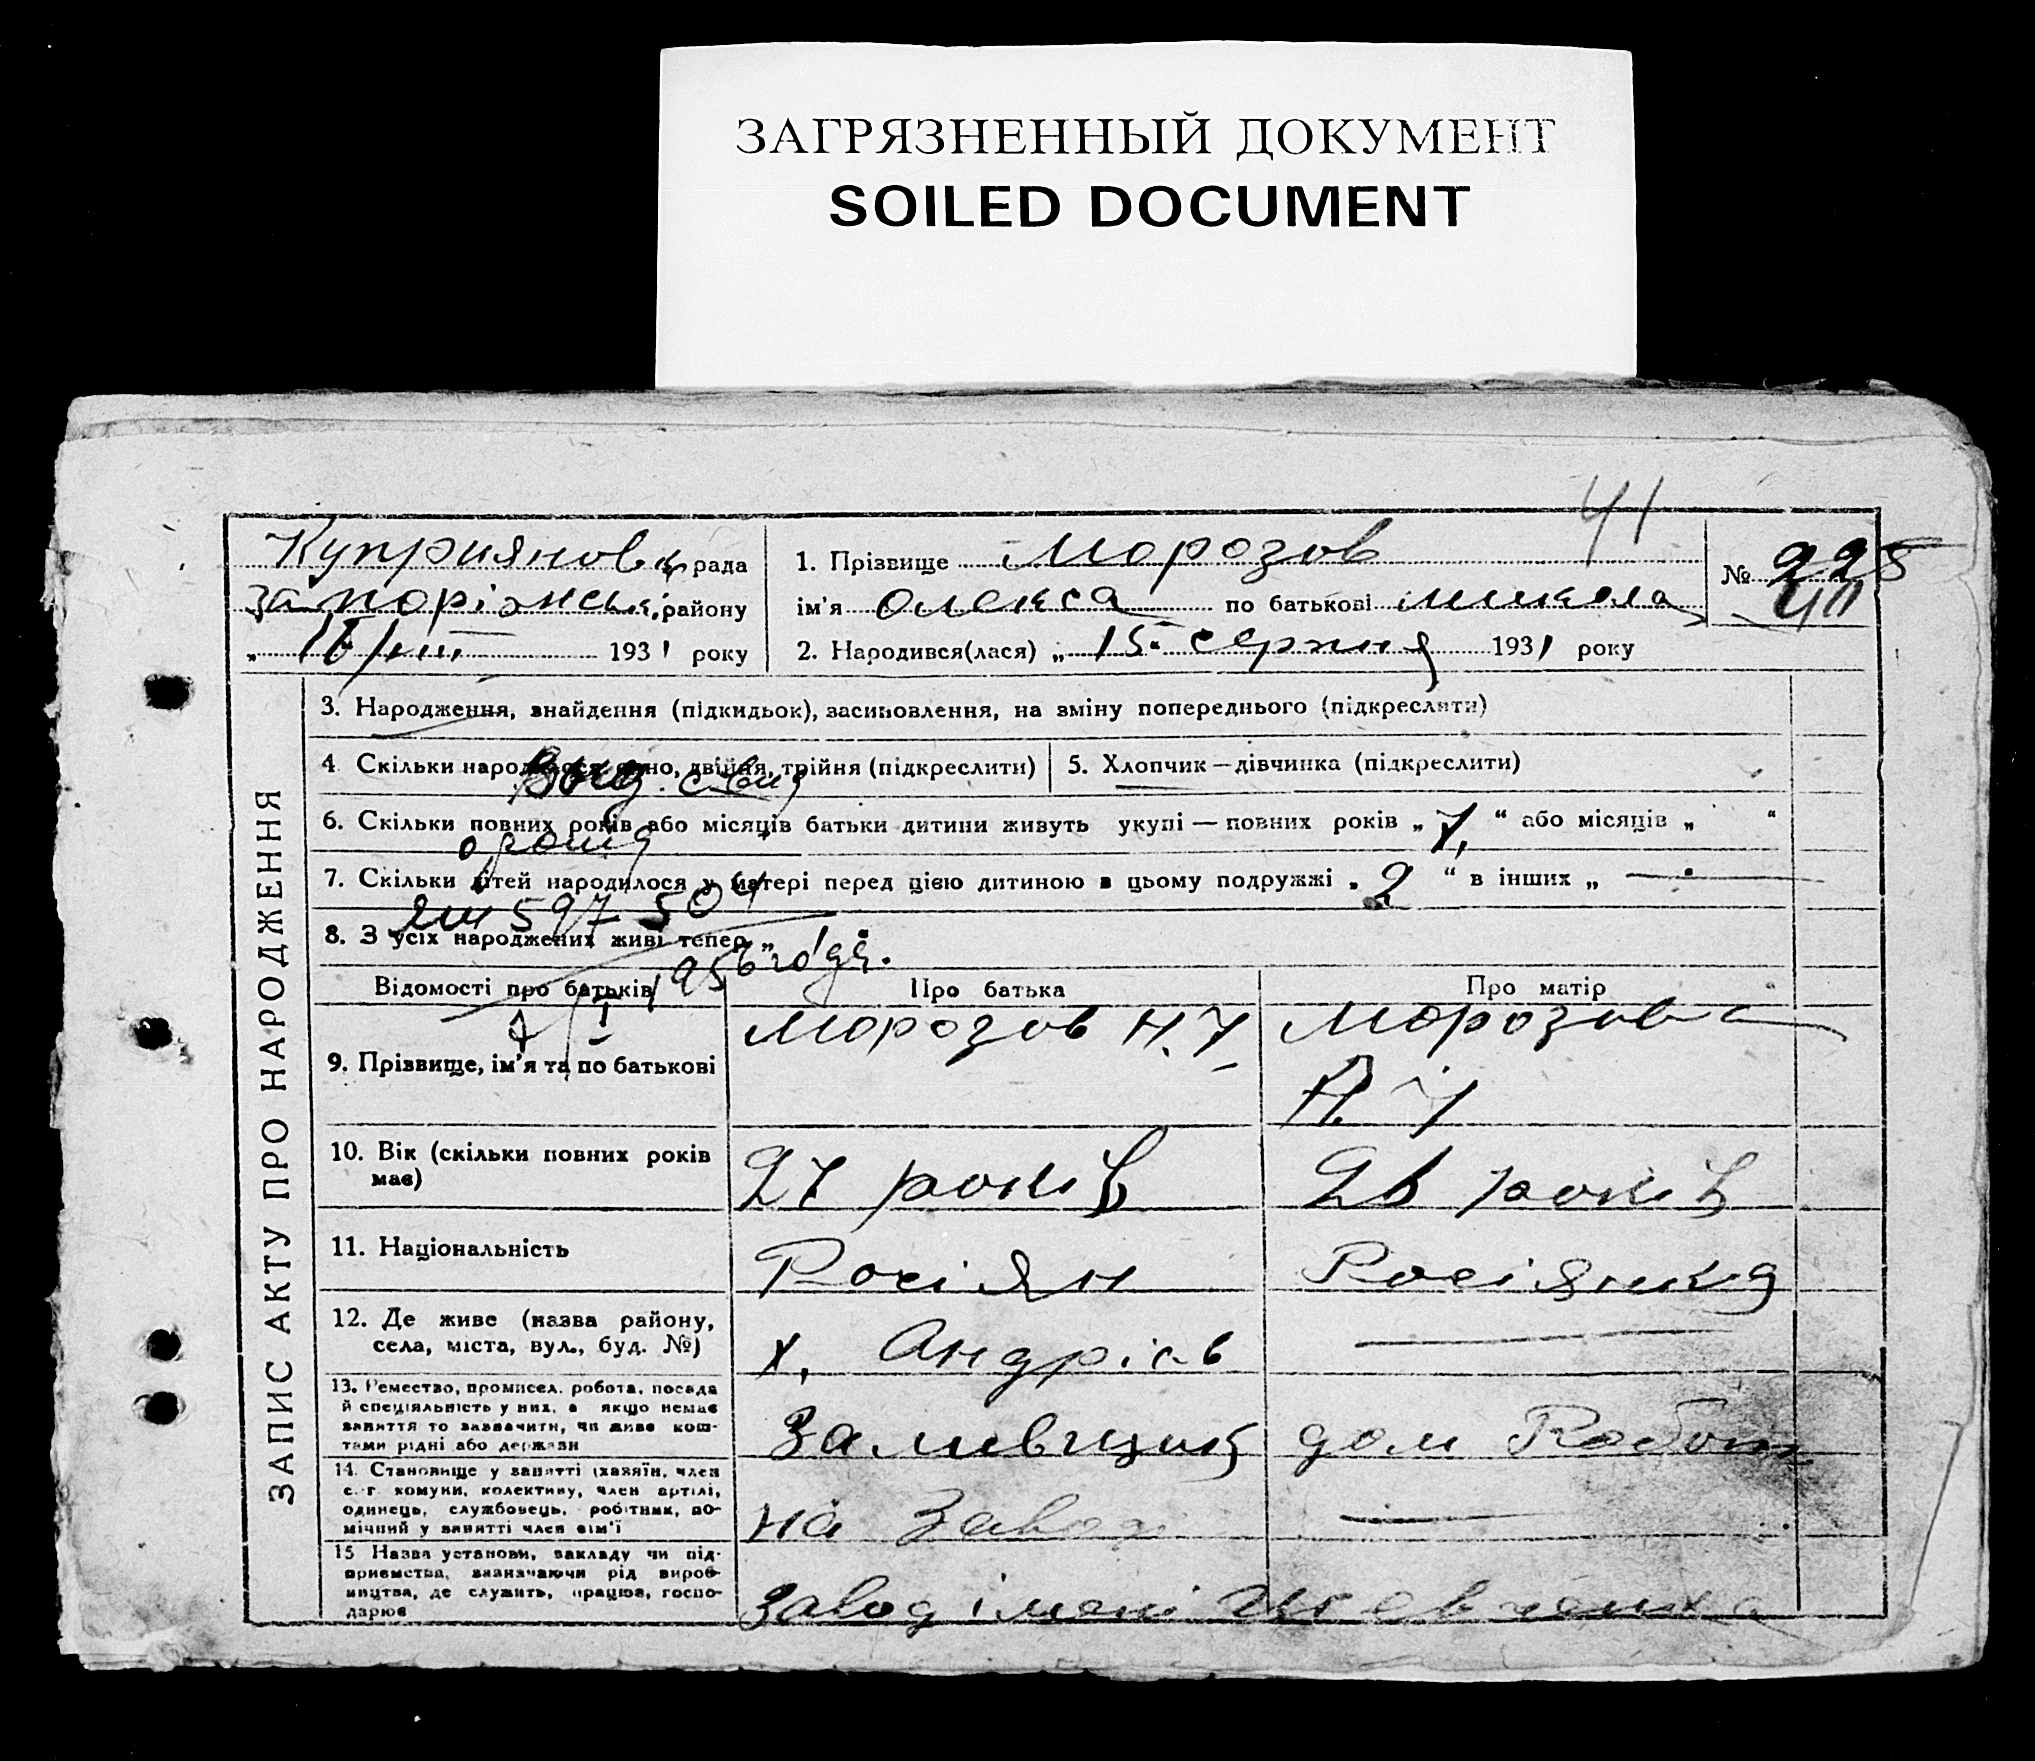 ЗАГРЯЗНЕННЫЙ ДОКУМЕНТ
SOILED DOCUMENT
41
Куприянов рада
Запоріжські району
„ 16/VIII 1931 року
1. Прізвище Морозов
ім'я Олекса по батькові Микола
2. Народився(лася) „ 15 серпня 1931 року
№ 228
40
ЗАПИС АКТУ ПРО НАРОДЖЕННЯ
3. Народження, знайдення (підкидьок), засиновлення, на зміну попереднього (підкреслити)
4 Скільки народилося: одно, двійня, трійня (підкреслити)
5. Хлопчик — дівчинка (підкреслити)
6. Скільки повних років або місяців батьки дитини живуть укупі — повних років „ 7, “ або місяців „ “
7. Скільки дітей народилося у матері перед цією дитиною в цьому подружжі „ 2 “ в інших „ —
8. З усіх народжених живі тепер „
597504
1956 года.
Відомості про батьків
Про батька
Про матір
9. Прізвище, ім'я та по батькові
Морозов Н. У
Морозова
А. У
10. Вік (скільки повних років
має)
27 років
26 років
11. Національність
Росіян
Росіянка
12. Де живе (назва району,
села, міста, вул., буд. №)
х. Андріів
—
13. Ремество, промисел, робота, посада
й спеціяльність у них, а якщо немає
заняття то зазначити, чи живе кош-
тами рідні або держави
Заливщик
дом Работ
14. Становище у занятті (хазяїн, член
с.-г. комуни, колективу, член артілі,
одинець, службовець, робітник, по-
мічний у занятті член сім'ї
на Заводі
—
15 Назва установи, закладу чи під-
приємства, зазначаючи рід вироб-
ництва, де служить, працює, госпо-
дарює
Завод імені Шевченка